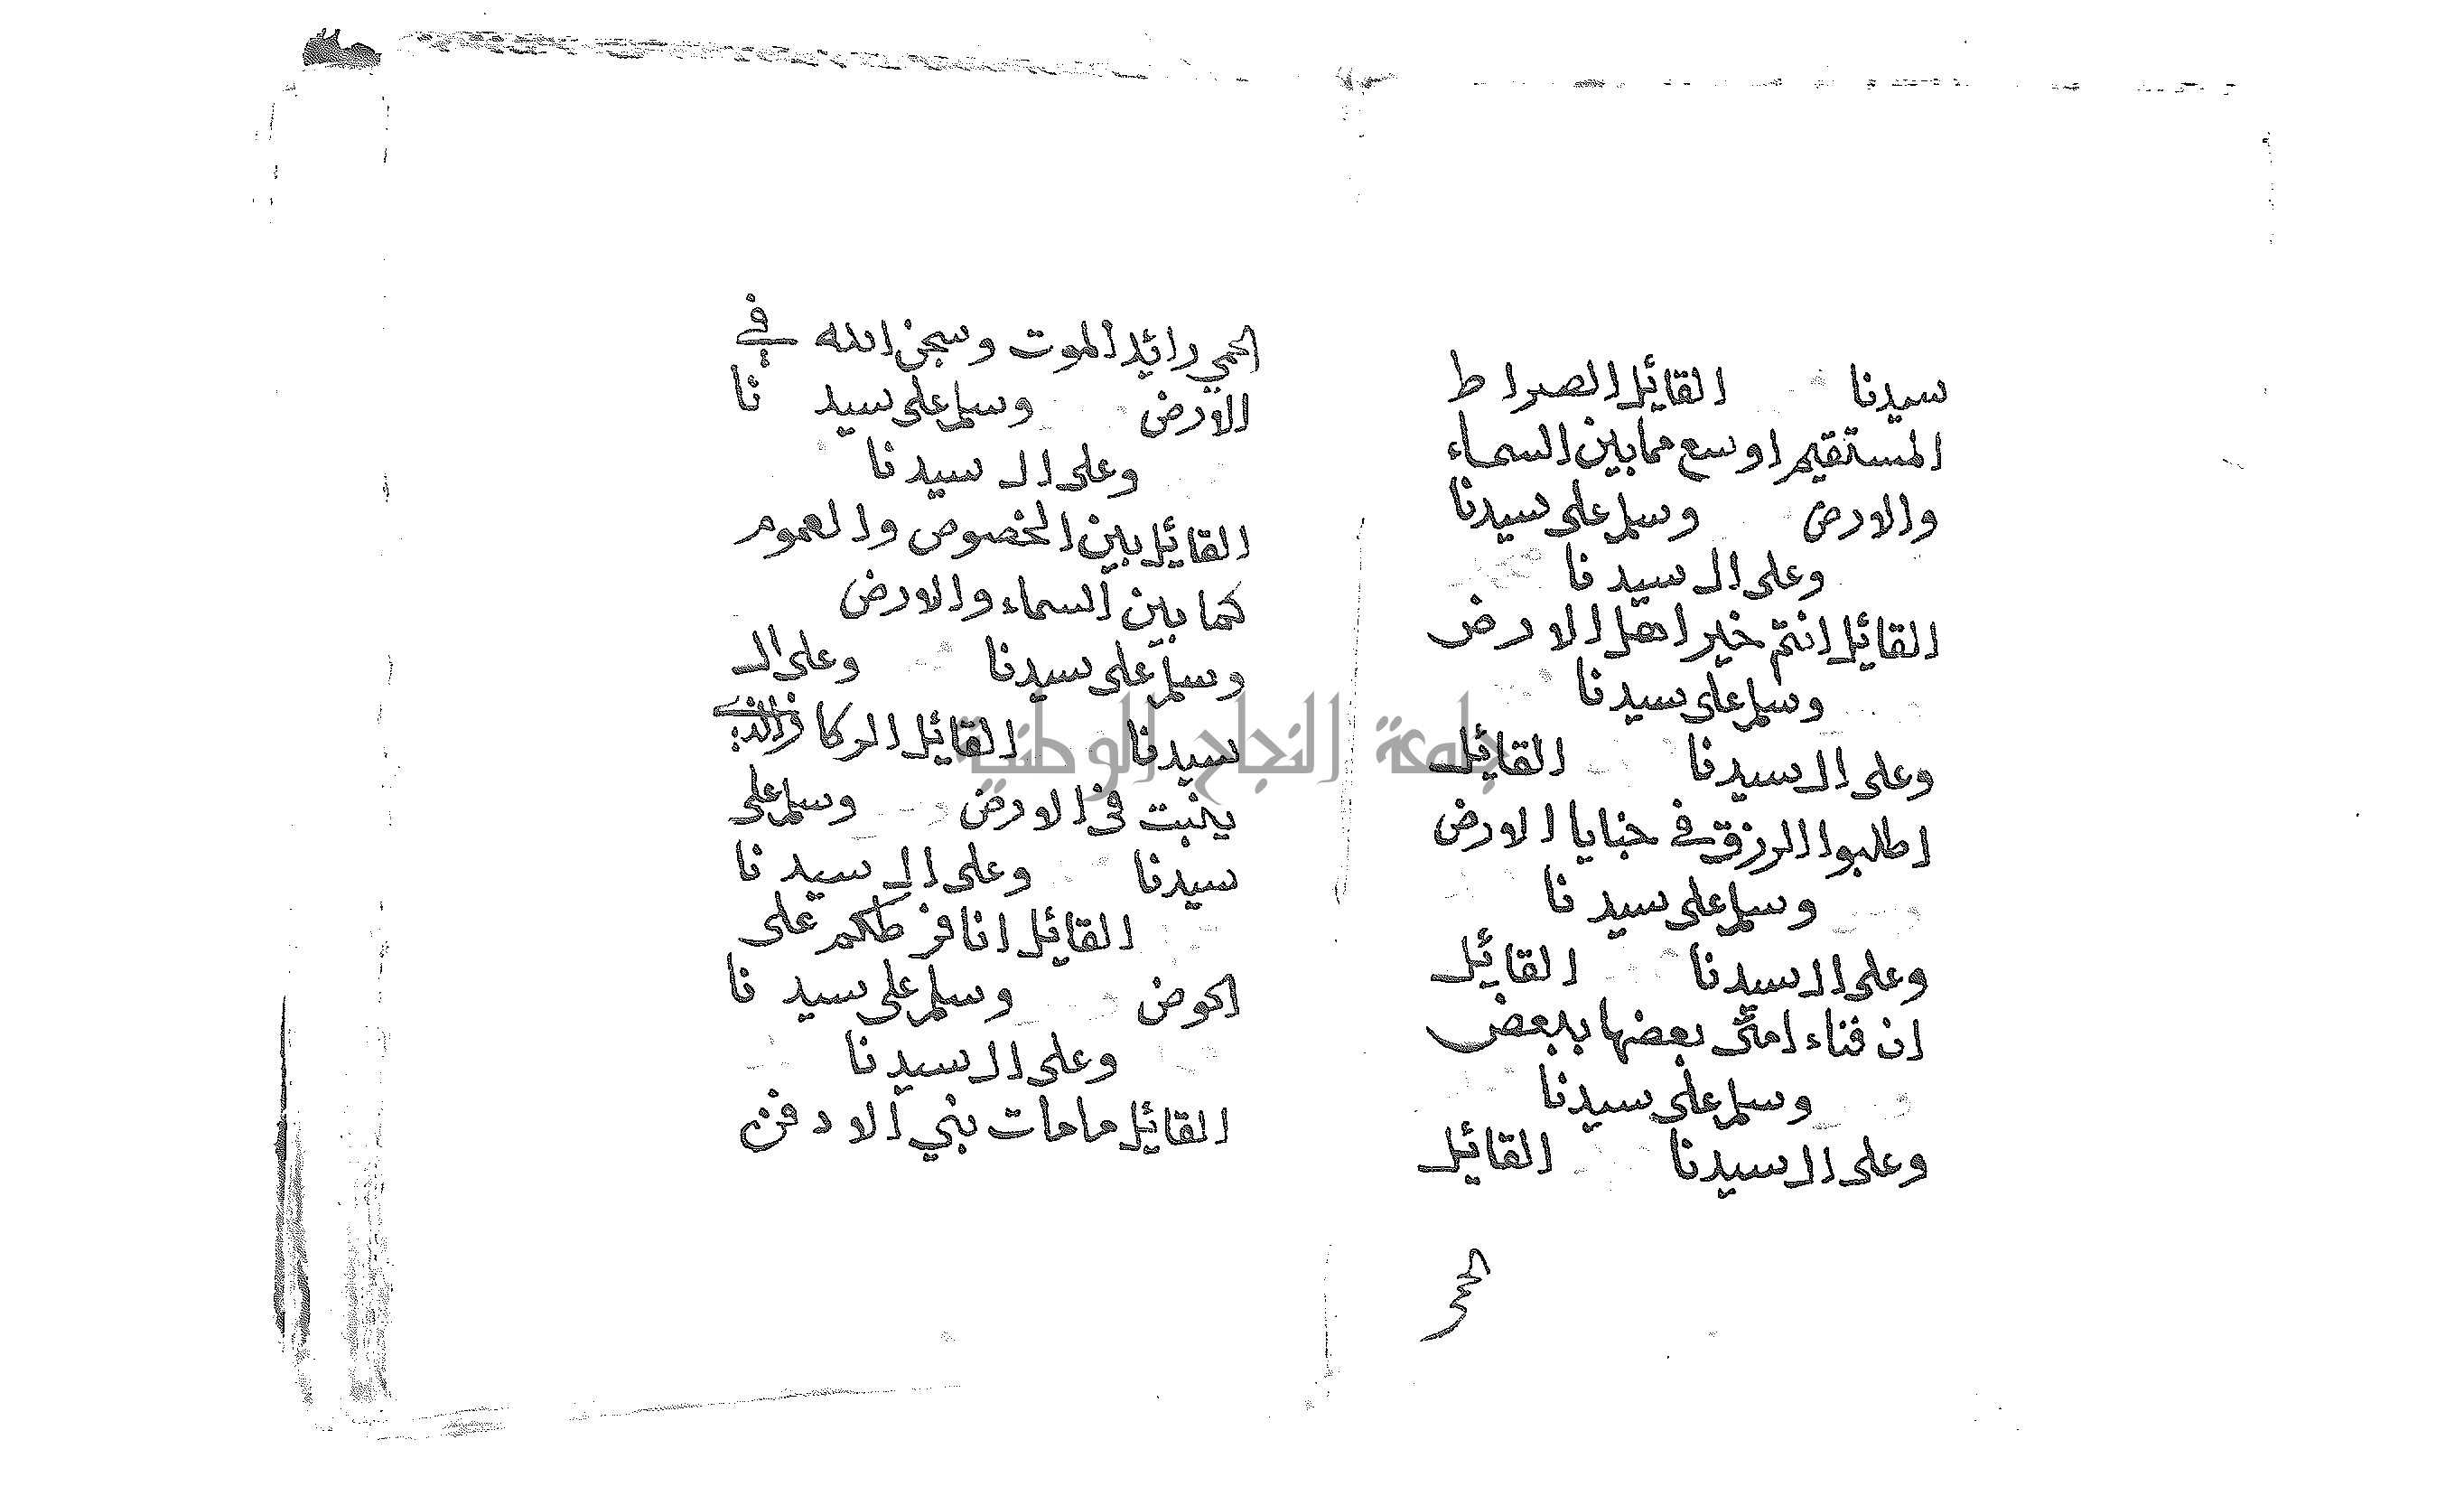 سيدنا القائل الصراط
المستقيم اوسع مما بين السماء
والارض وسلم على سيدنا
وعلى ال سيدنا
القائل انتم خير اهل الارض
وسلم على سيدنا
وعلى ال سيدنا القائل
اطلبوا الرزق في خبايا الارض
وسلم على سيدنا
وعلى ال سيدنا القائل
ان فناء امتى بعضها ببعض
وسلم على سيدنا
وعلى ال سيدنا القائل
الحمى
الحمي رائد الموت وسجن الله في
الارض وسلم على سيدنا
وعلى ال سيدنا
القائل بين الخصوص والعموم
كما بين السماء والارض
وسلم على سيدنا وعلى ال
سيدنا القائل الركاز الذي
ينبت في الارض وسلم على
سيدنا وعلى ال سيدنا
القائل انا فرطكم على
الحوض وسلم على سيدنا
وعلى ال سيدنا
القائل مامات بني الا دفن
جامعة النجاح الوطنية